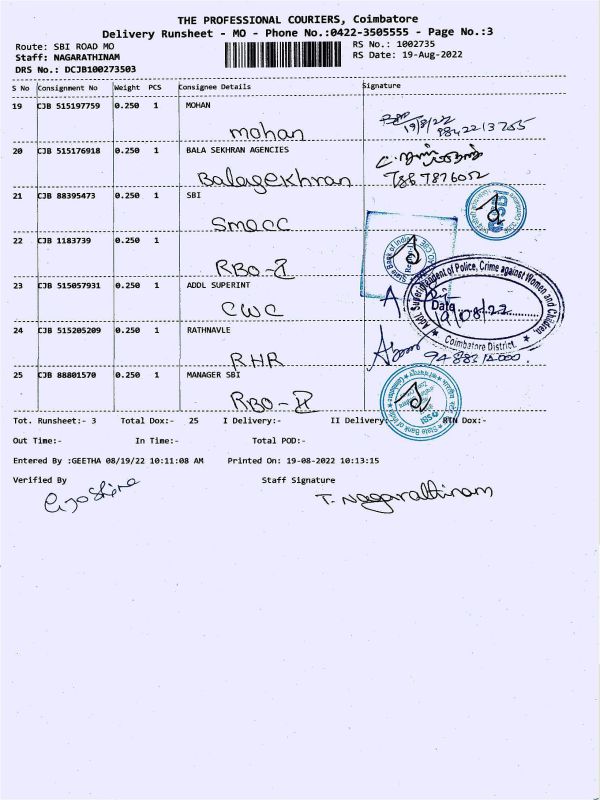 THE PROFESSIONAL COURIERS, Coimbatore
Delivery Runsheet - MO - Phone No.:0422-3505555 - Page No.:3
Route: SBI ROAD MO
RS No.: 1002735
Staff: NAGARATHINAM
RS Date: 19-Aug-2022
DRS No.: DCJB100273503
S No Consignment No Weight PCS Consignee Details Signature
19 CJB 515197759 0.250 1 MOHAN
mohan 19/8/22
9842213755
20 CJB 515176918 0.250 1 BALA SEKHRAN AGENCIES
Balagekhran
7867876052
21 CJB 88395473 0.250 1 SBI
SMACC
22 CJB 1183739 0.250 1
RBO-I
State Bank of India
23 CJB 515057931 0.250 1 ADDL SUPERINT
CWC
Addl. Superintendent of Police, Crime against Women and Children,
Date 19/08/22
Coimbatore District.
24 CJB 515205209 0.250 1 RATHNAVLE
RHR
25 CJB 88801570 0.250 1 MANAGER SBI
RBO-II
State Bank of India
SBI
Tot. Runsheet:- 3 Total Dox:- 25 I Delivery:- II Delivery:- RTN Dox:-
Out Time:- In Time:- Total POD:-
Entered By :GEETHA 08/19/22 10:11:08 AM Printed On: 19-08-2022 10:13:15
Verified By Staff Signature
T. Nagarathinam